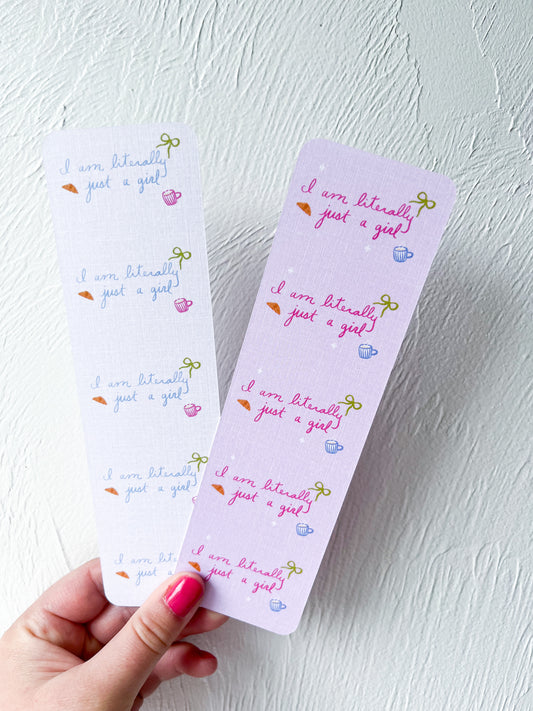 I am literally
just a girl
I am literally
just a girl
I am literally
just a girl
I am literally
just a girl
I am literally
just a girl
I am literally
just a girl
I am literally
just a girl
I am literally
just a girl
I am literally
just a girl
I am literally
just a girl